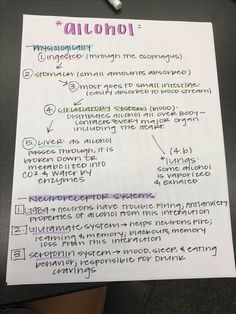 *alcohol:
- Physiologically
① ingested (through the esophagus)
② stomach (small amounts absorbed)
③ most goes to small intestine:
(easily absorbed to blood stream)
④ circulatory system (blood):
distributes alcohol all over body-
contacts every major organ
including the heart
⑤ liver: as alcohol
passes through, it is
broken down or
metabolized into
CO2 & water by
enzymes
(4.b)
*lungs:
some alcohol
is vaporized
& exhaled
- Neuroreceptor systems
1. gaba → neurons have trouble firing; antianxiety
properties of alcohol from this interaction
2. Glutamate system → helps neurons fire;
learning & memory; blackouts, memory
loss from this interaction
3. serotonin system → mood, sleep, & eating
behavior; responsible for drunk
cravings